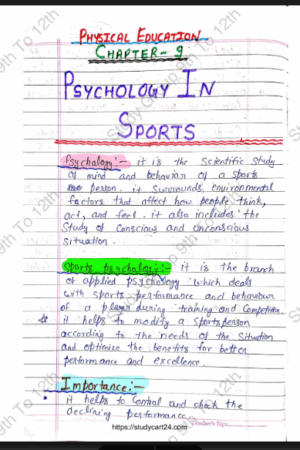 PHYSICAL EDUCATION
CHAPTER - 9
PSYCHOLOGY IN
SPORTS
Psychology:- it is the scientific study
of mind and behavior of a sports
person. it surrounds environmental
factors that affect how people think,
act, and feel. it also includes the
Study of Conscious and unconscious
situation.
Sports psychology:- it is the branch
of applied psychology which deals
with sports performance and behaviour
of a player during training and Competition.
it helps to modify a sportsperson
according to the needs of the situation
and optimize the benefits for better
performance and excellence.
Importance:-
it helps to Control and check the
declining performance
Teacher's Sign
https://studycart24.com